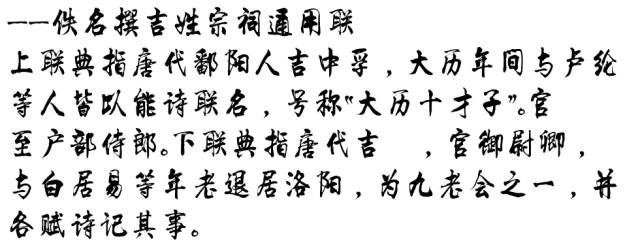 ——佚名撰吉姓宗祠通用联
上联典指唐代鄱阳人吉中孚，大历年间与卢纶
等人皆以能诗联名，号称“大历十才子”。官
至户部侍郎。下联典指唐代吉　，官御尉卿，
与白居易等年老退居洛阳，为九老会之一，并
各赋诗记其事。